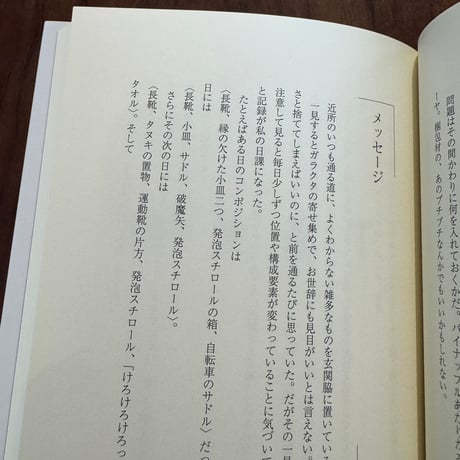 問題はその間かわりに何を入れておくかだ。パイナップル
ーヤ。梱包材の、あのプチプチなんかでもいいかもしれない。
メッセージ
近所のいつも通る道に、よくわからない雑多なものを玄関脇に置いている
一見するとガラクタの寄せ集めで、お世辞にも見目がいいとは言えない。
さと捨ててしまえばいいのに、と前を通るたびに思っていた。だがその一見
注意して見ると毎日少しずつ位置や構成要素が変わっていることに気づいて
と記録が私の日課になった。
たとえばある日のコンポジションは
〈長靴、縁の欠けた小皿二つ、発泡スチロールの箱、自転車のサドル〉だっ
日には
〈長靴、小皿、サドル、破魔矢、発泡スチロール〉。
さらにその次の日には
〈長靴、タヌキの置物、運動靴の片方、発泡スチロール、「けろけろけろっ
タオル〉。そして